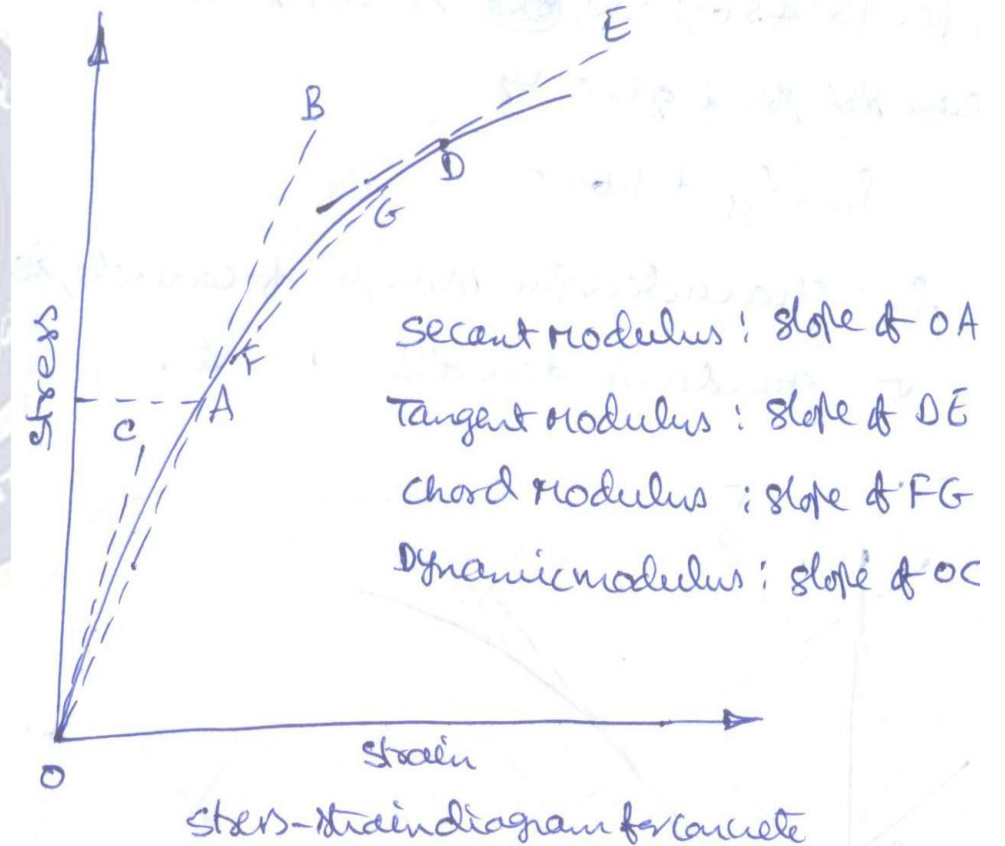 E
B
D
G
F
A
C
Stress
Secant Modulus : slope of OA
Tangent Modulus : slope of DE
Chord Modulus : slope of FG
Dynamic modulus : slope of OC
O
Strain
stress-strain diagram for concrete